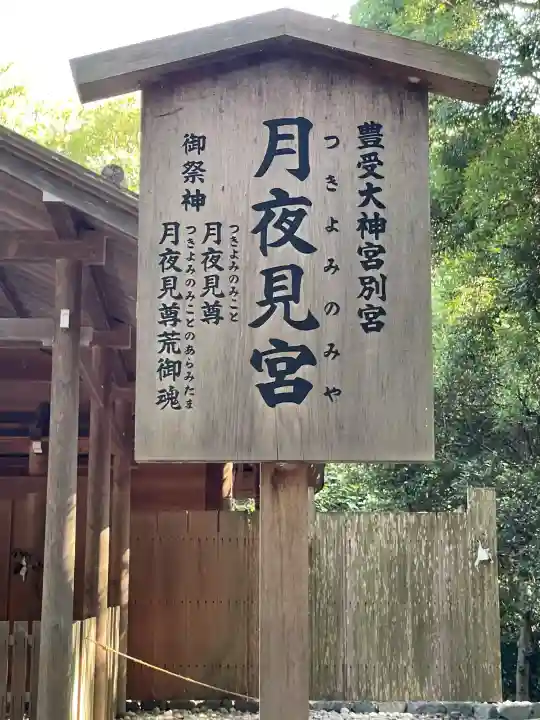 豊受大神宮別宮
月夜見宮
つきよみのみや
御祭神
月夜見尊
つきよみのみこと
月夜見尊荒御魂
つきよみのみことのあらみたま